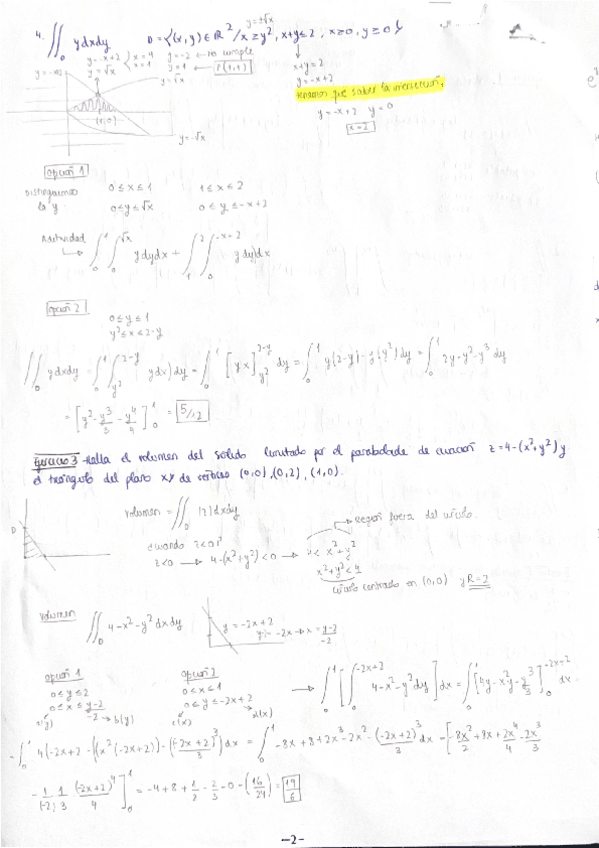 4. ∬_D y dx dy D = {(x,y) ∈ R² / x ≥ y², x+y ≤ 2, x ≥ 0, y ≥ 0}
y = ±√x
y = -x+2 x = 4 y = -2 ← no cumple
y = √x x = 1 y = 1 ← P(1,1)
x+y = 2
y = -x+2
tenemos que saber la intersección.
y = -x+2 y = 0
x = 2
y = √x
y = -√x
opción 1
Distinguimos 0 ≤ x ≤ 1 1 ≤ x ≤ 2
la y 0 ≤ y ≤ √x 0 ≤ y ≤ -x+2
Aditividad
∫_0^1 ∫_0^{√x} y dy dx + ∫_1^2 ∫_0^{-x+2} y dy dx
opción 2
0 ≤ y ≤ 1
y² ≤ x < 2-y
∬_D y dx dy = ∫_0^1 ( ∫_{y²}^{2-y} y dx ) dy = ∫_0^1 [yx]_{y²}^{2-y} dy = ∫_0^1 y(2-y) - y(y²) dy = ∫_0^1 2y - y² - y³ dy
= [y² - y³/3 - y⁴/4]_0^1 = 5/12
Ejercicio 3 Halla el volumen del sólido limitado por el paraboloide de ecuación z = 4-(x²+y²) y
el triángulo del plano xy de vértices (0,0), (0,2), (1,0).
volumen = ∬_D |z| dx dy
región fuera del círculo.
cuando z<0?
z<0 → 4-(x²+y²) < 0 → 4 < x²+y²
x²+y² < 4
círculo centrado en (0,0) y R=2
D
volumen ∬_D 4-x²-y² dx dy
y = -2x+2
y-2 = -2x → x = y-2/-2
opción 1 opción 2
0 ≤ y ≤ 2 0 ≤ x ≤ 1
0 ≤ x ≤ y-2/-2 0 ≤ y ≤ -2x+2
b(y) c(x) d(x)
→ ∫_0^1 [ ∫_0^{-2x+2} 4-x²-y² dy ] dx = ∫_0^1 [4y - x²y - y³/3]_0^{-2x+2} dx =
= ∫_0^1 4(-2x+2 - (x²(-2x+2)) - ((-2x+2)³/3) dx = ∫_0^1 -8x+8+2x³-2x² - (-2x+2)³/3 dx = [-8x²/2 + 8x + 2x⁴/4 - 2x³/3
- 1/(-2) · 1/3 · (-2x+2)⁴/4]_0^1 = -4+8+1/2-2/3-0-(16/24) = 19/6
-2-